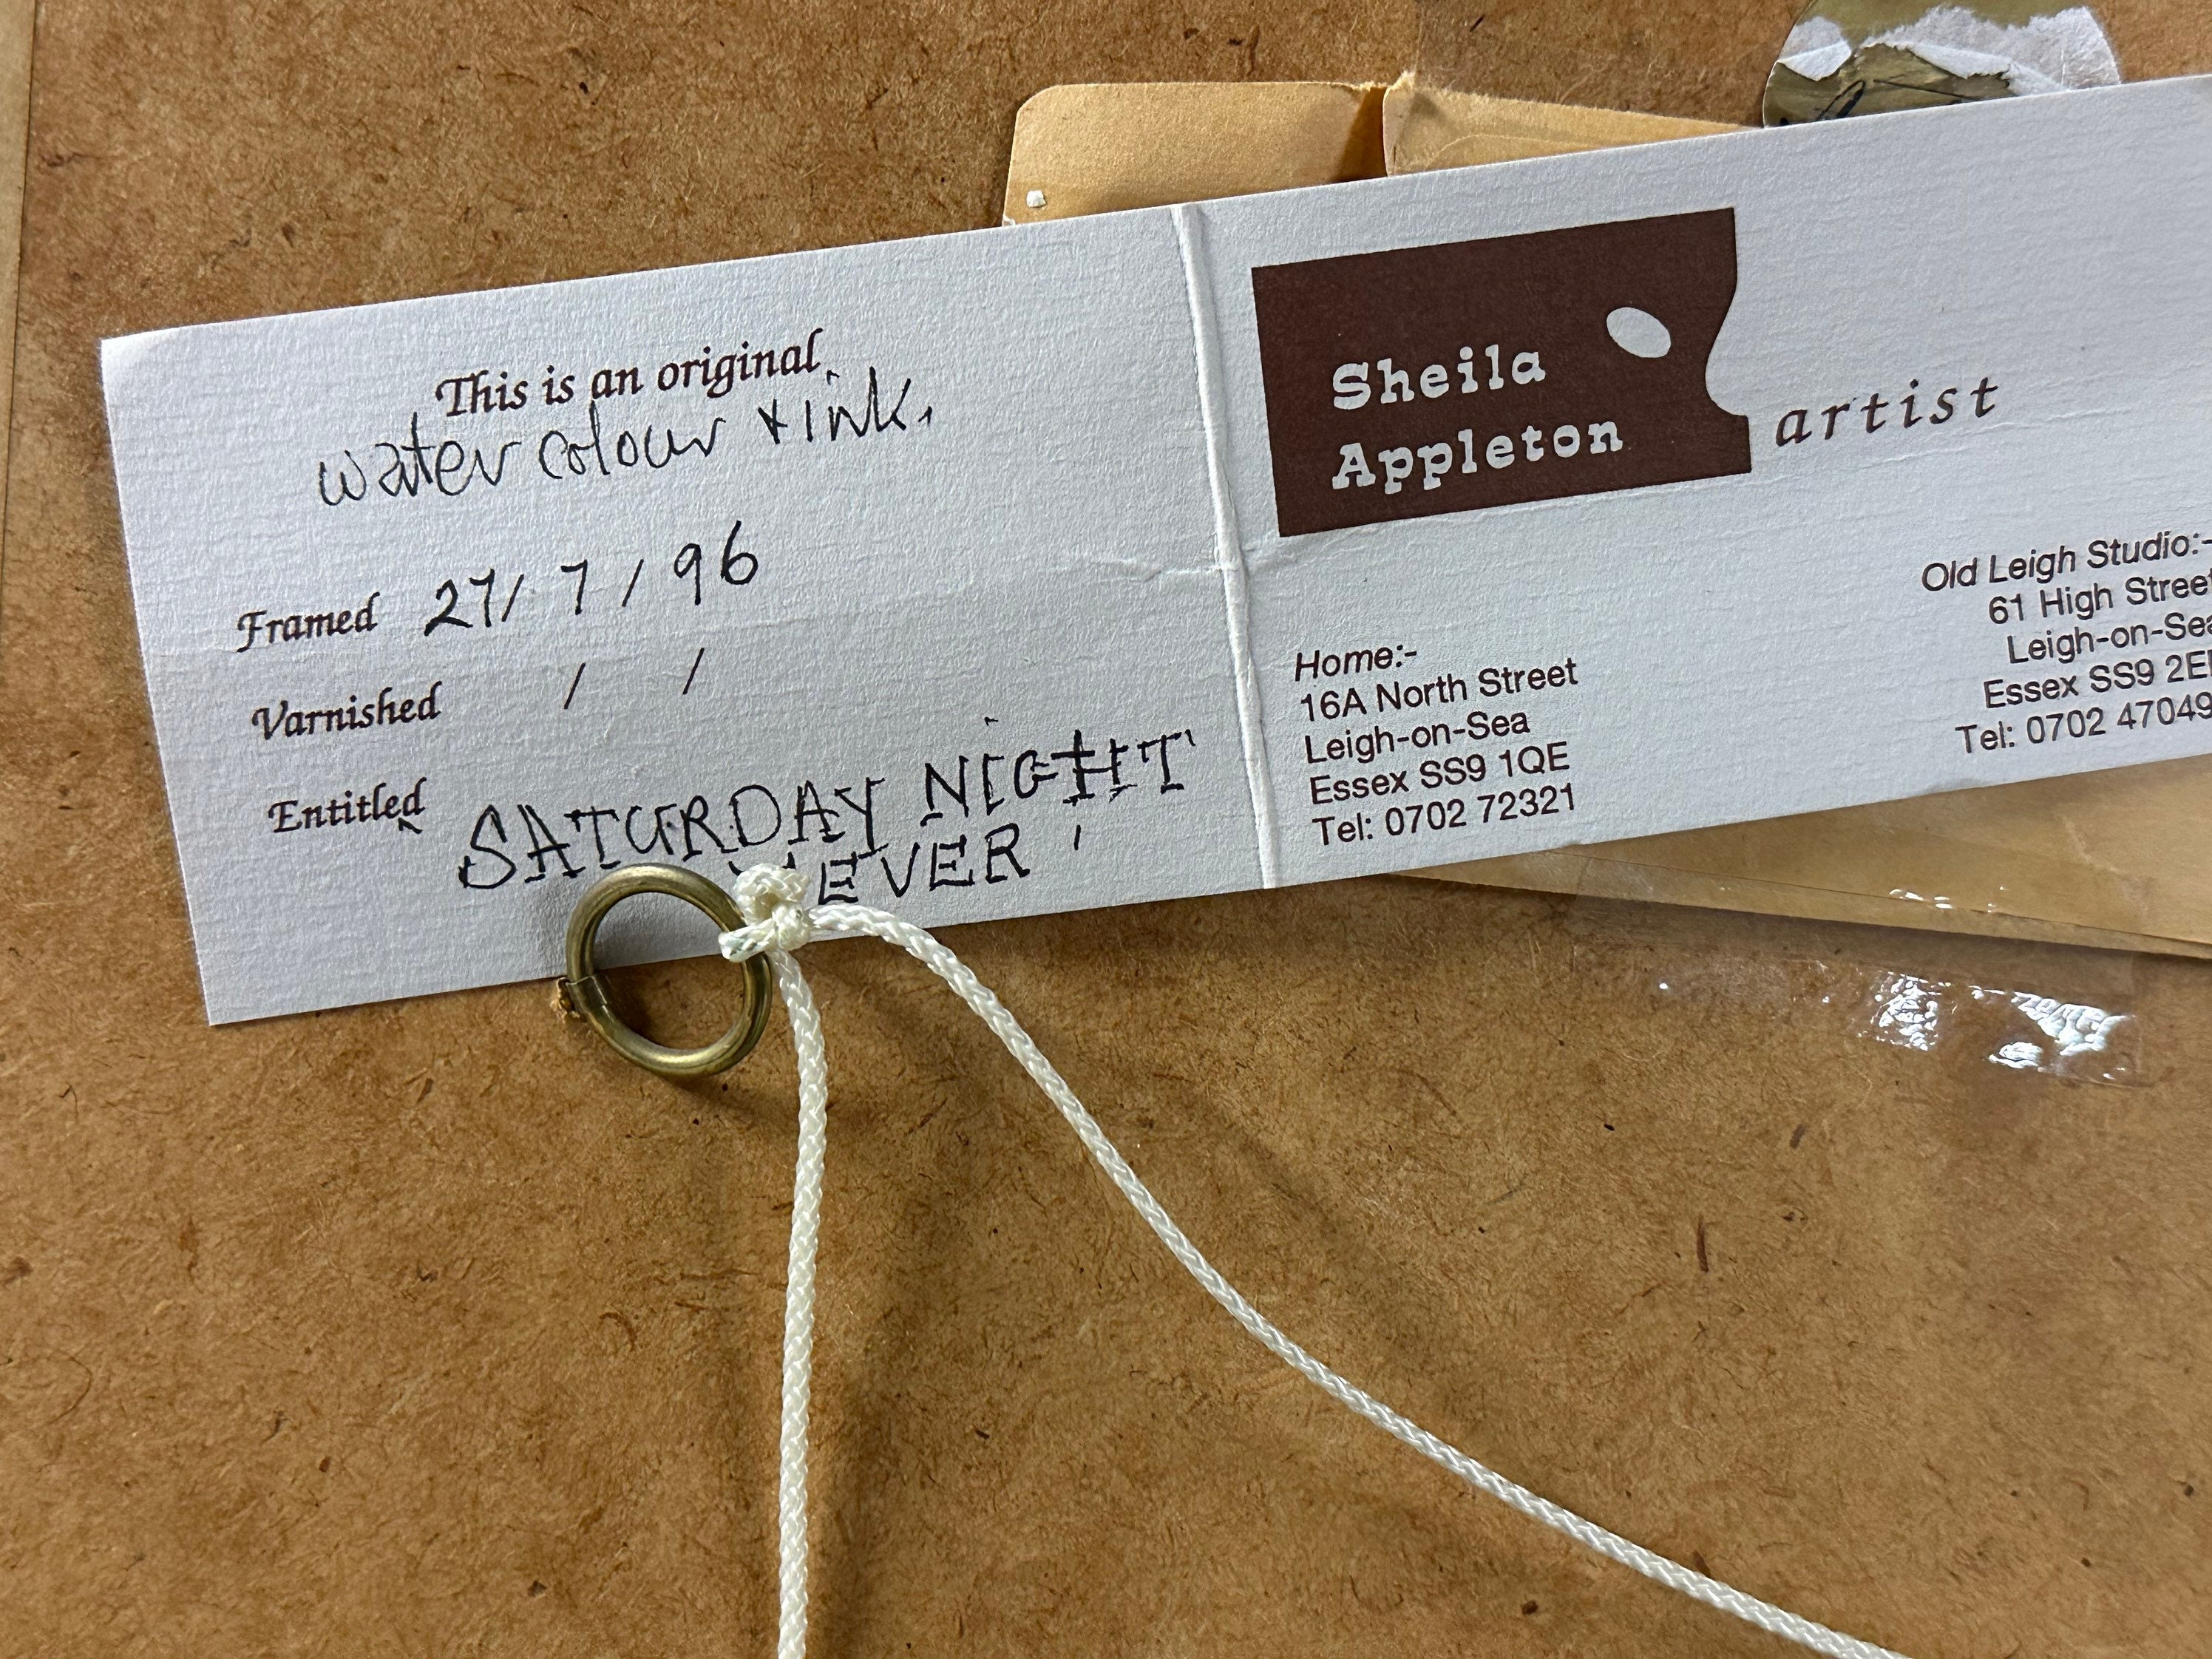 This is an original
water colour + ink.
Framed 27/ 7 / 96
Varnished / /
Entitled SATURDAY NIGHT'
EVER'
Sheila
Appleton
artist
Home:-
16A North Street
Leigh-on-Sea
Essex SS9 1QE
Tel: 0702 72321
Old Leigh Studio:-
61 High Street
Leigh-on-Sea
Essex SS9
Tel: 0702 47049